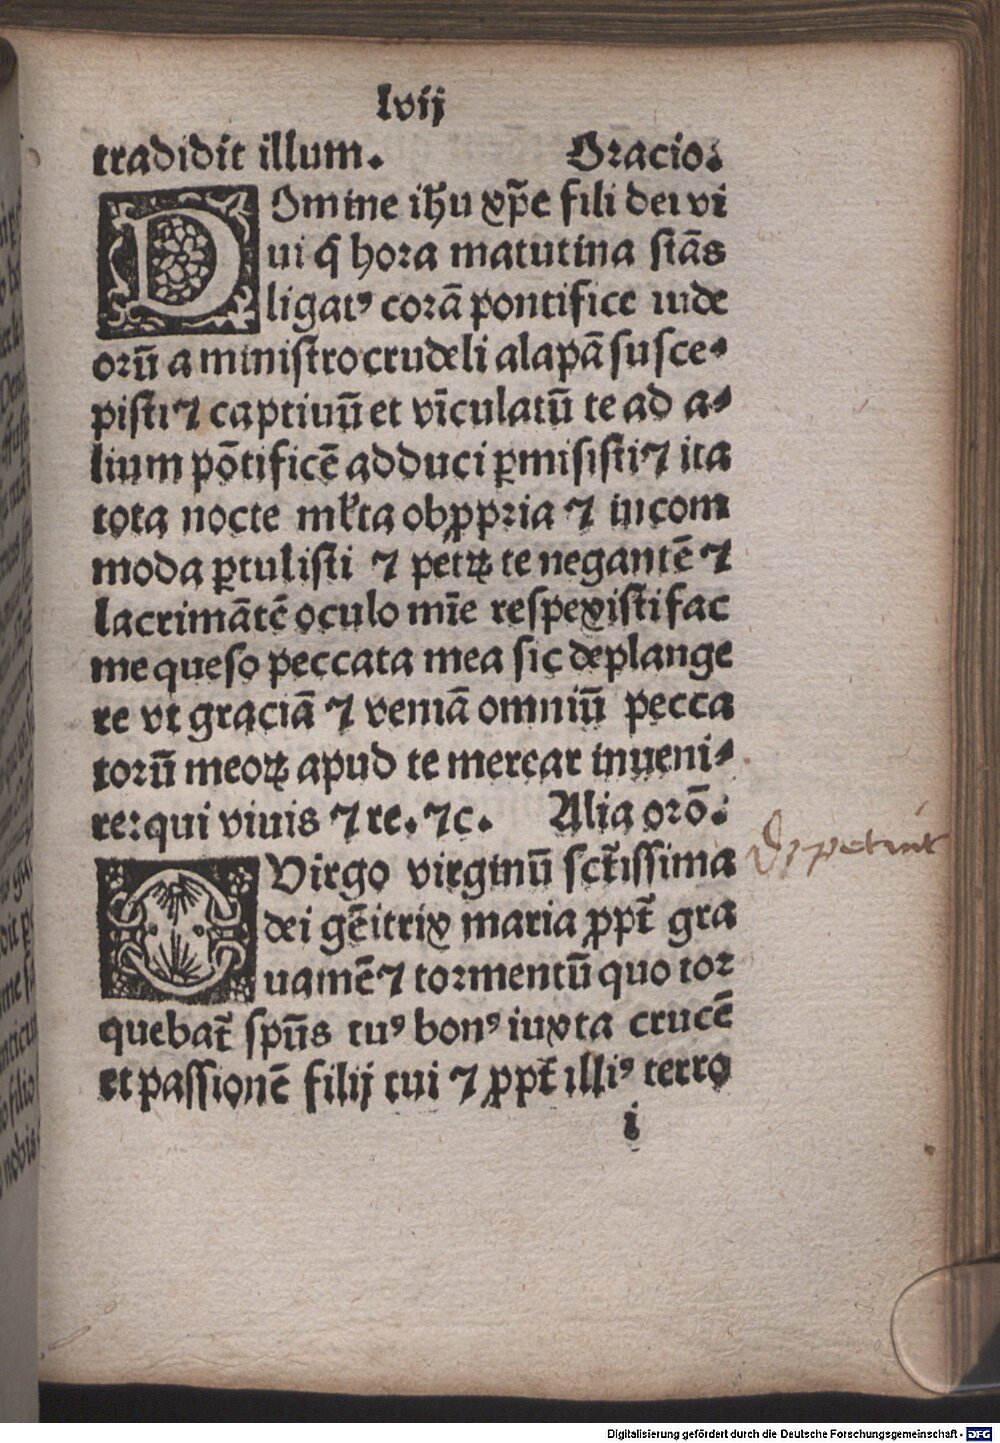 lvij
tradidit illum. Oracio:
DOmine ihu xp̄e fili dei vi
ui q̄ hora matutina stās
ligatꝰ corā pontifice iude
orū a ministro crudeli alapā susce⸗
pisti ⁊ captiuū et vīculatū te ad a⸗
lium pōtificē adduci ꝑmisisti ⁊ ita
tota nocte mlta obꝓpria ⁊ incom
moda ꝑtulisti ⁊ petꝝ te negantē ⁊
lacrimātē oculo mīe respexisti fac
me queso peccata mea sic deplange
re vt graciā ⁊ veniā omniū pecca
torū meoꝝ apud te merear inueni⸗
re: qui viuis ⁊ re. ⁊c. Alia orō:
O Virgo virginū sct̄issima
dei gēitrix maria ꝓpt̄ gra
uamē ⁊ tormentū quo tor
quebat̄ spūs tuꝰ bonꝰ iuxta crucē
et passionē filij tui ⁊ ꝓpt̄ illiꝰ terro
i
Digitalisierung gefördert durch die Deutsche Forschungsgemeinschaft - DFG